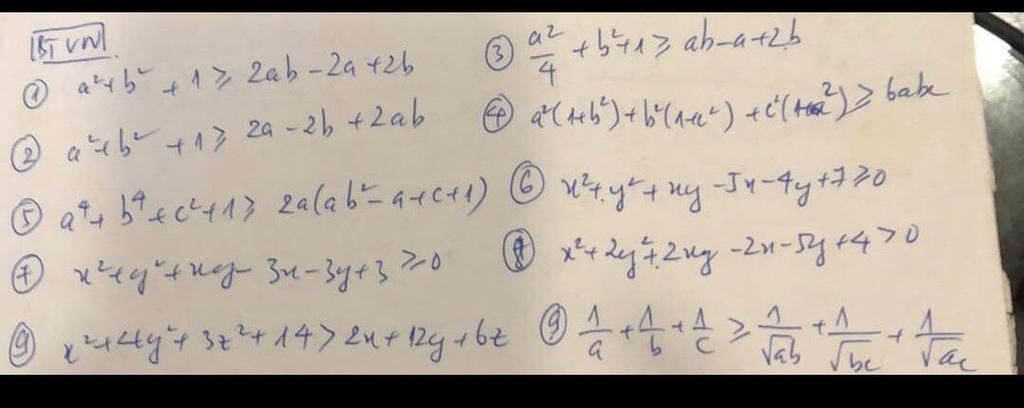 BTVN
① a² + b² + 1 ≥ 2ab - 2a + 2b
③ a²/4 + b² + 1 ≥ ab - a + 2b
② a² + b² + 1 ≥ 2a - 2b + 2ab
④ a²(1+b²) + b²(1+c²) + c²(1+a²) ≥ 6abc
⑤ a⁴ + b⁴ + c² + 1 ≥ 2a(ab² - a + c + 1)
⑥ x² + y² + xy - 5x - 4y + 7 ≥ 0
⑦ x² + y² + xy - 3x - 3y + 3 ≥ 0
⑧ x² + 2y² + 2xy - 2x - 5y + 4 > 0
⑨ x² + 4y² + 3z² + 14 > 2x + 12y + 6z
⑨ 1/a + 1/b + 1/c ≥ 1/√ab + 1/√bc + 1/√ac